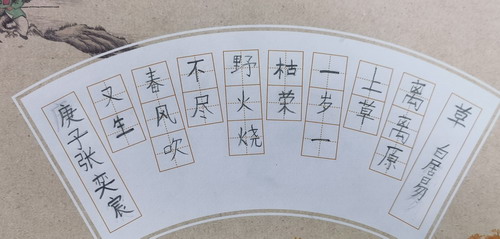 草 白居易
离离原
上草
一岁一
枯荣
野火烧
不尽
春风吹
又生
庚子张奕宸